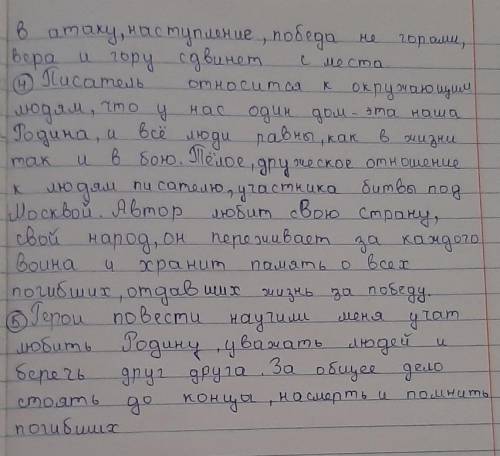 в атаку, наступление, победа не горами,
вера и гору сдвинет с места.
④ Писатель относится к окружающим
людям, что у нас один дом - эта наша
Родина, и всё люди равны, как в жизни
так и в бою. Тёлое, дружеское отношение
к людям писателю, участника битвы под
Москвой. Автор любит свою страну,
свой народ, он переживает за каждого
воина и хранит память о всех
погибших, отдавших жизнь за победу.
⑤ Герои повести научим меня учат
любить Родину, уважать людей и
беречь друг друга. За общее дело
стоять до концы, насмерть и помнить
погибших